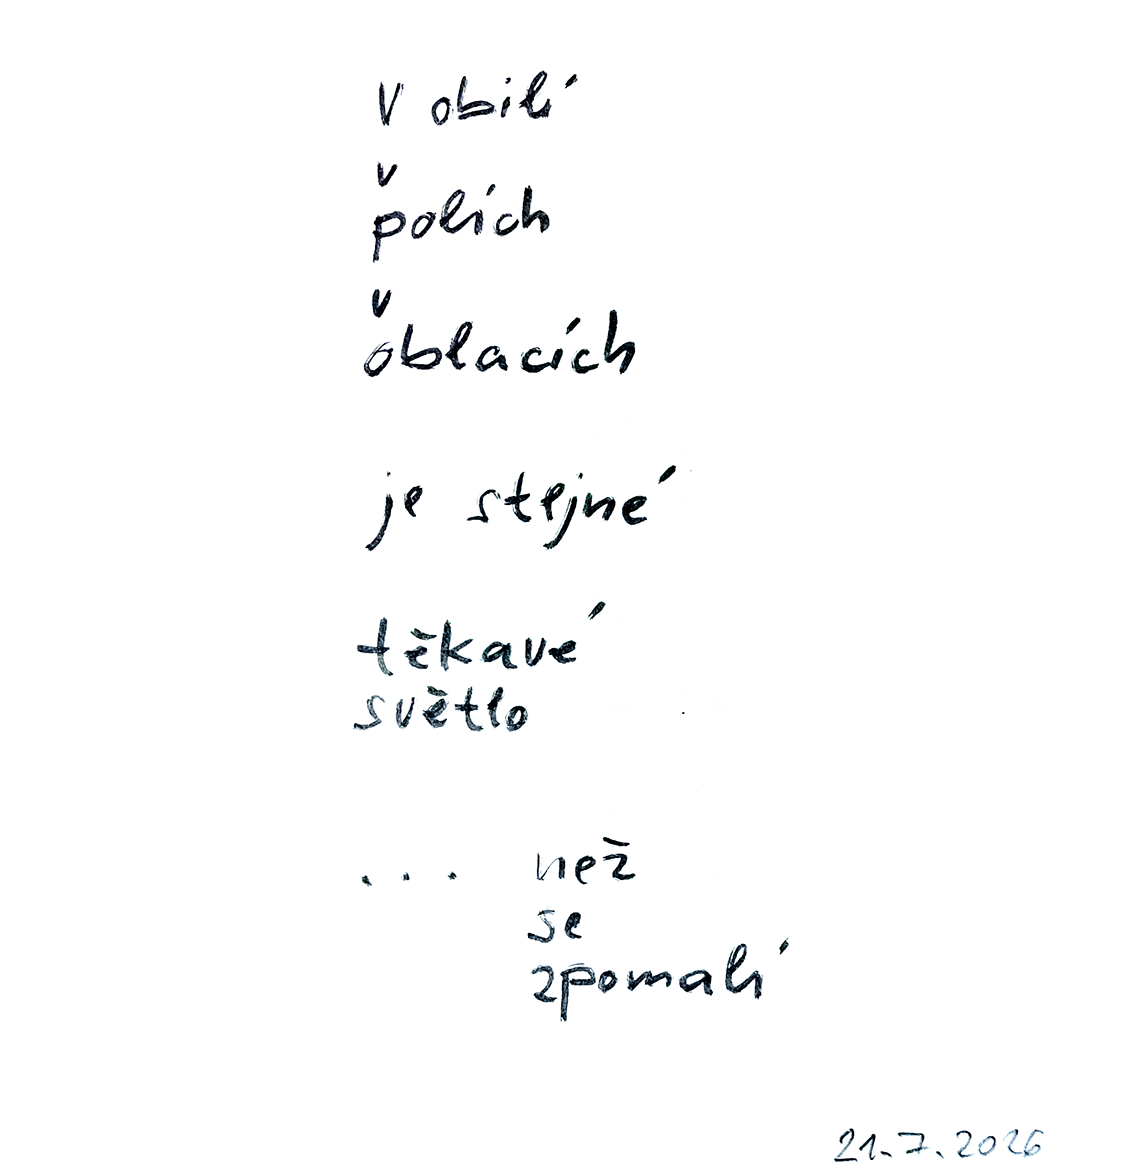 V obilí
v
polích
v
oblacích
je stejné
těkavé
světlo
... než
se
zpomalí
21.7.2026